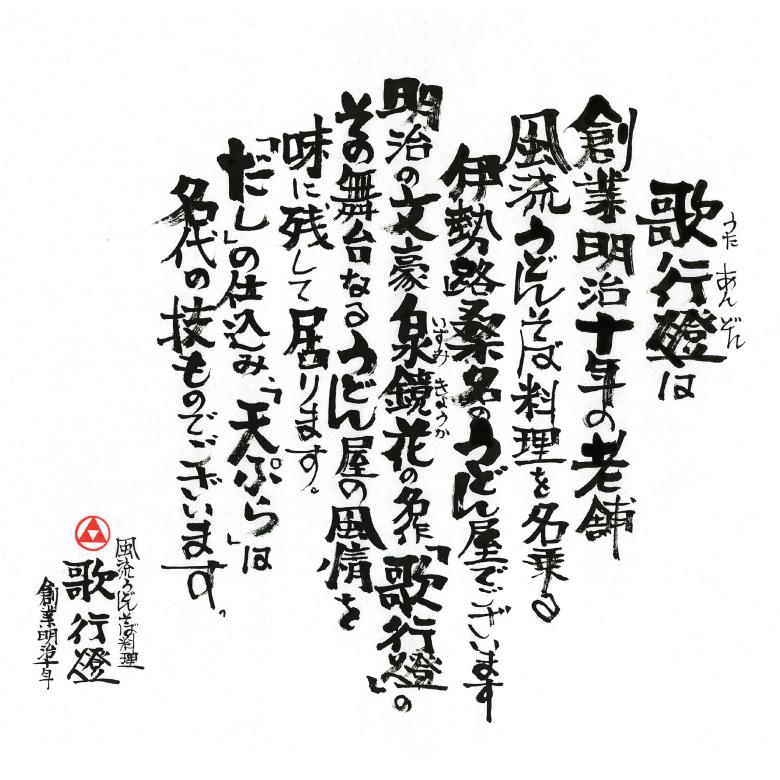 歌行燈は
うた あんどん
創業明治十年の老舗
風流うどんそば料理を名乗る
伊勢路桑名のうどん屋でございます
明治の文豪泉鏡花の名作「歌行燈」の
いずみ きょうか
その舞台なるうどん屋の風情を
味に残して居ります。
「だし」の仕込み、「天ぷら」は
名代の技ものでございます。
風流うどんそば料理
歌行燈
創業明治十年